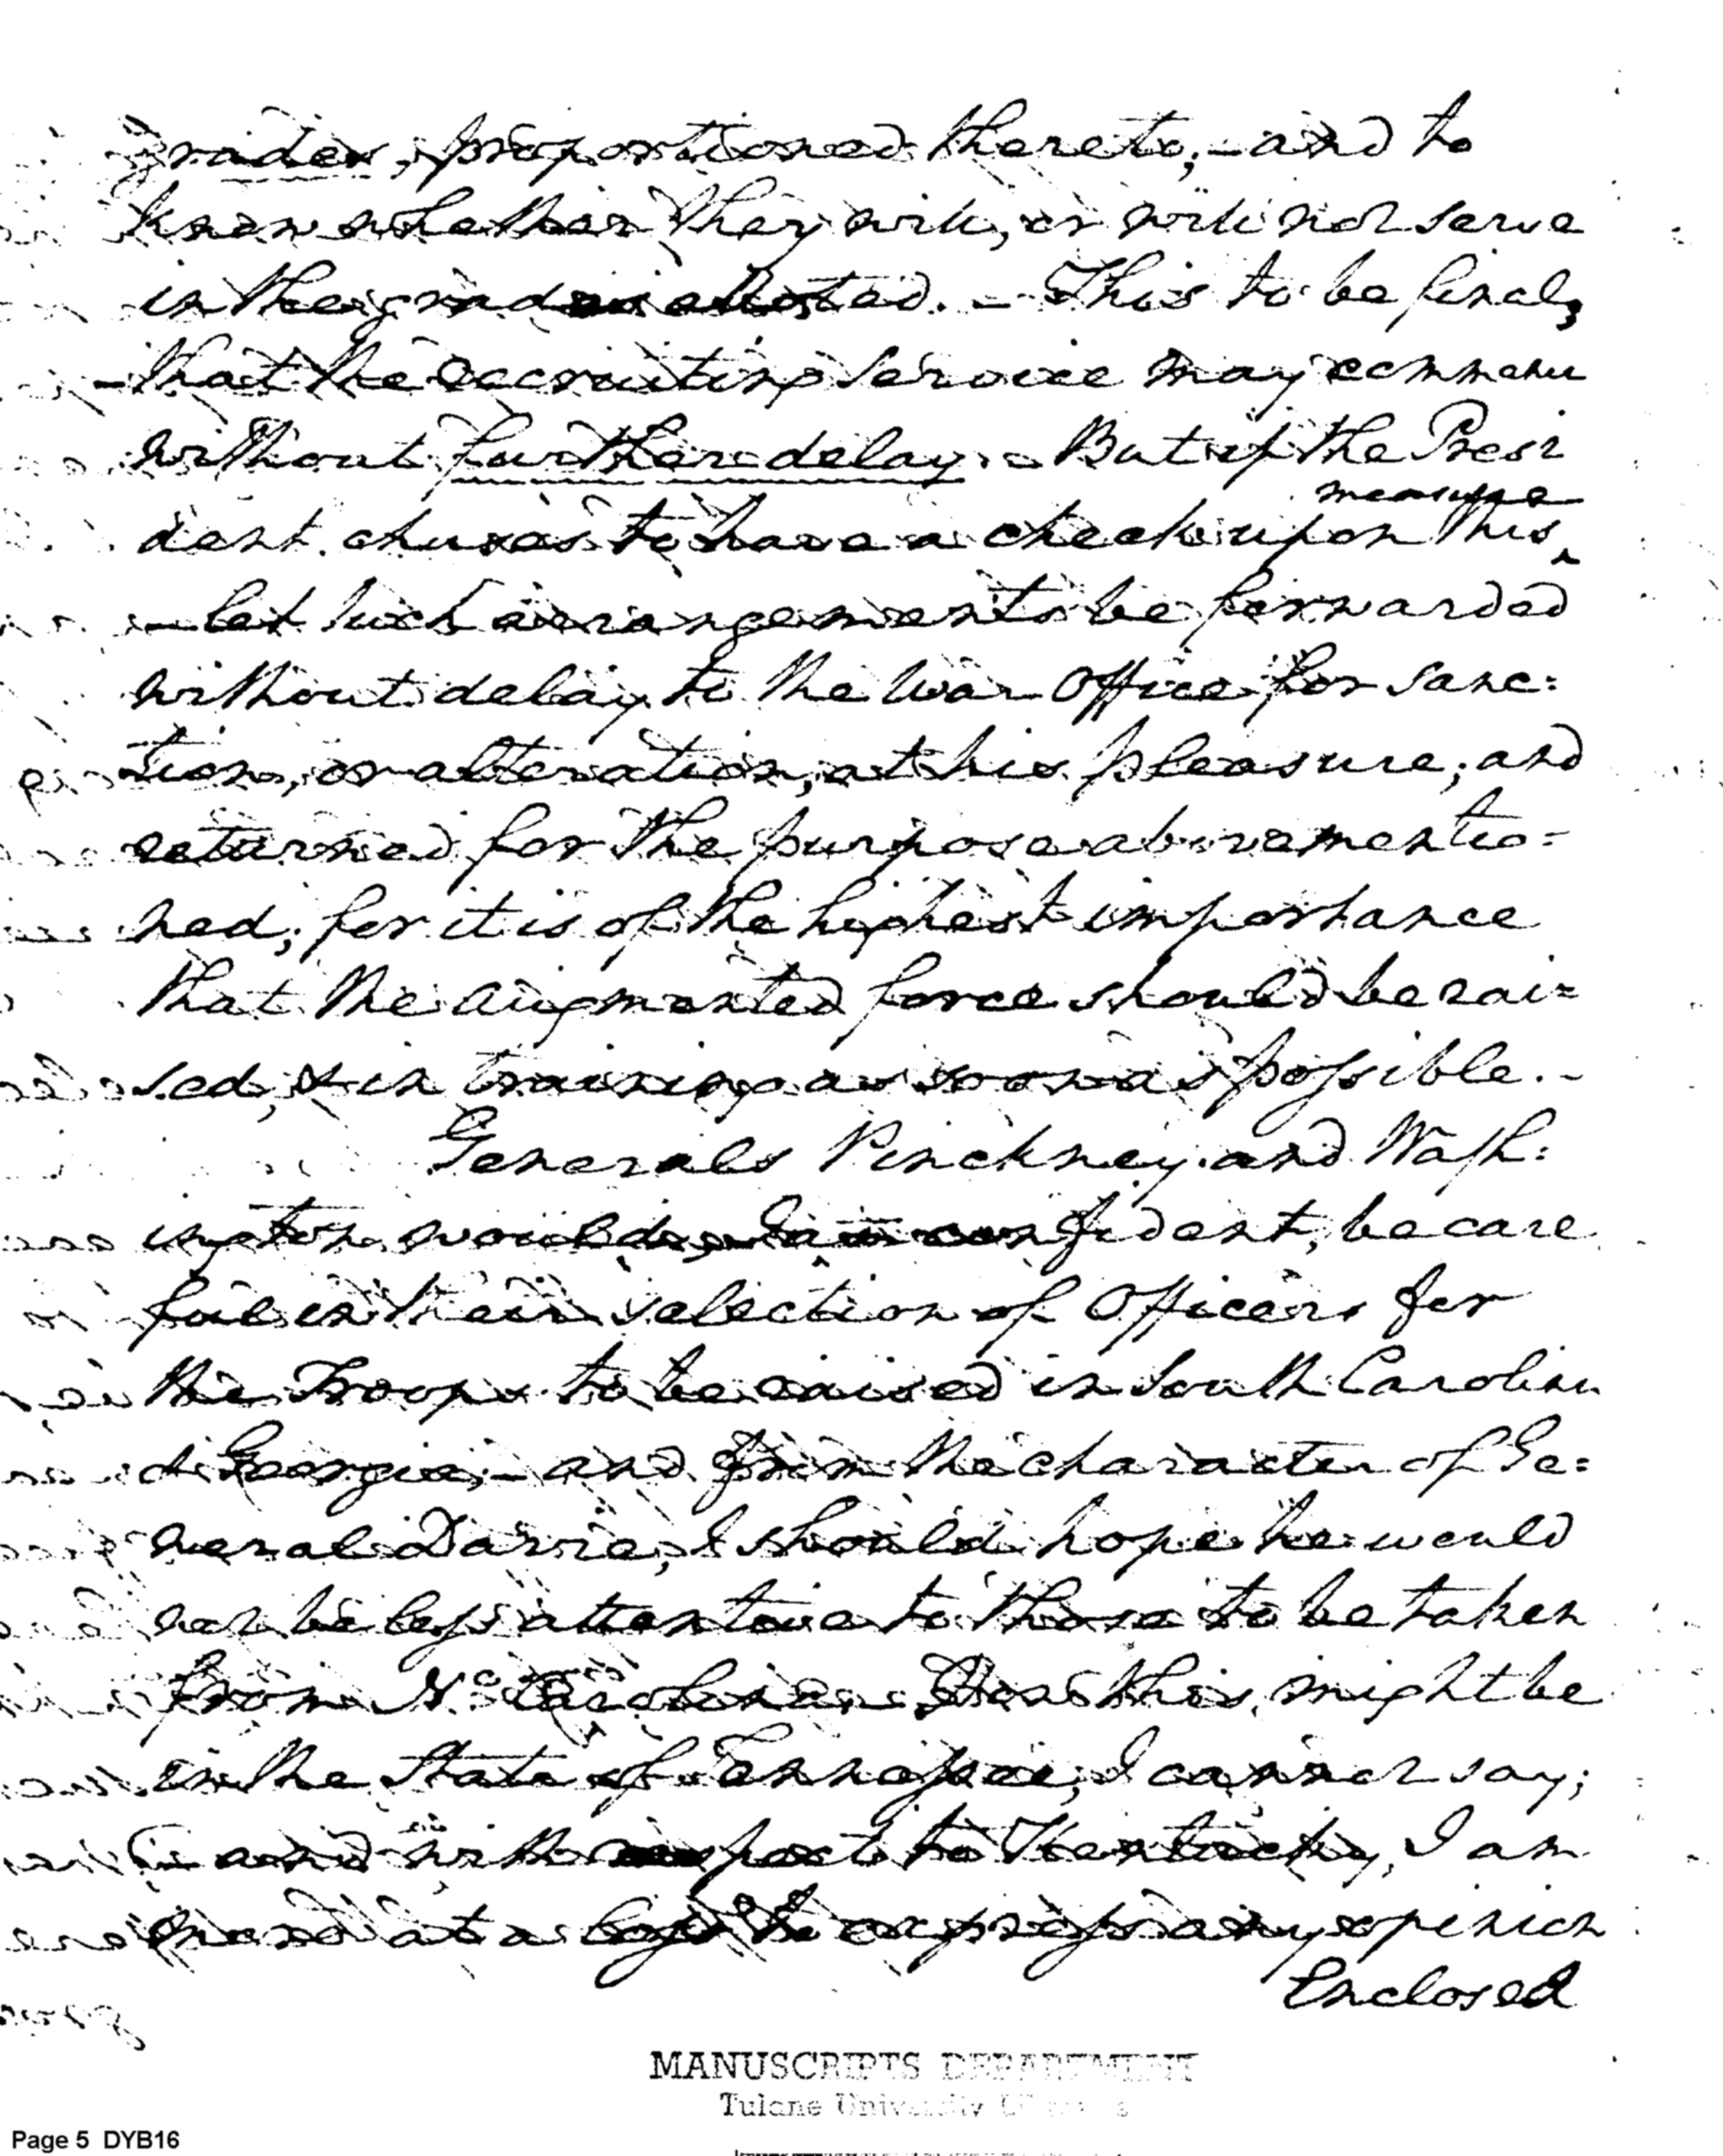 grades, proportioned thereto;—and to
know whether they will, or will not serve
in the grades allotted.—This to be final,
—that the recruiting Service may commence
without further delay.—But if the Presi
measure
dent chuses to have a check upon this
—let such arrangements be forwarded
without delay to the War Office for sanc:
tion, or alteration, at his pleasure; and
returned for the purpose abovementio=
ned; for it is of the highest importance
that the augmented force should be rai=
sed, & in training as soon as possible.-
Generals Pinckney and Wash:
ington would, I am confident, be care
ful in their selection of Officers for
the Troops to be raised in South Carolina
& Georgia;—and from the character of Ge=
neral Davie, I should hope he would
not be less attentive to those to be taken
from No. Carolina. How this, might be
in the State of Tennessee, I cannot say;
and with respect to Kentucky, I am
more at a loss to express any opinion
Enclosed
MANUSCRIPTS DEPARTMENT
Tulane University
Page 5 DYB16